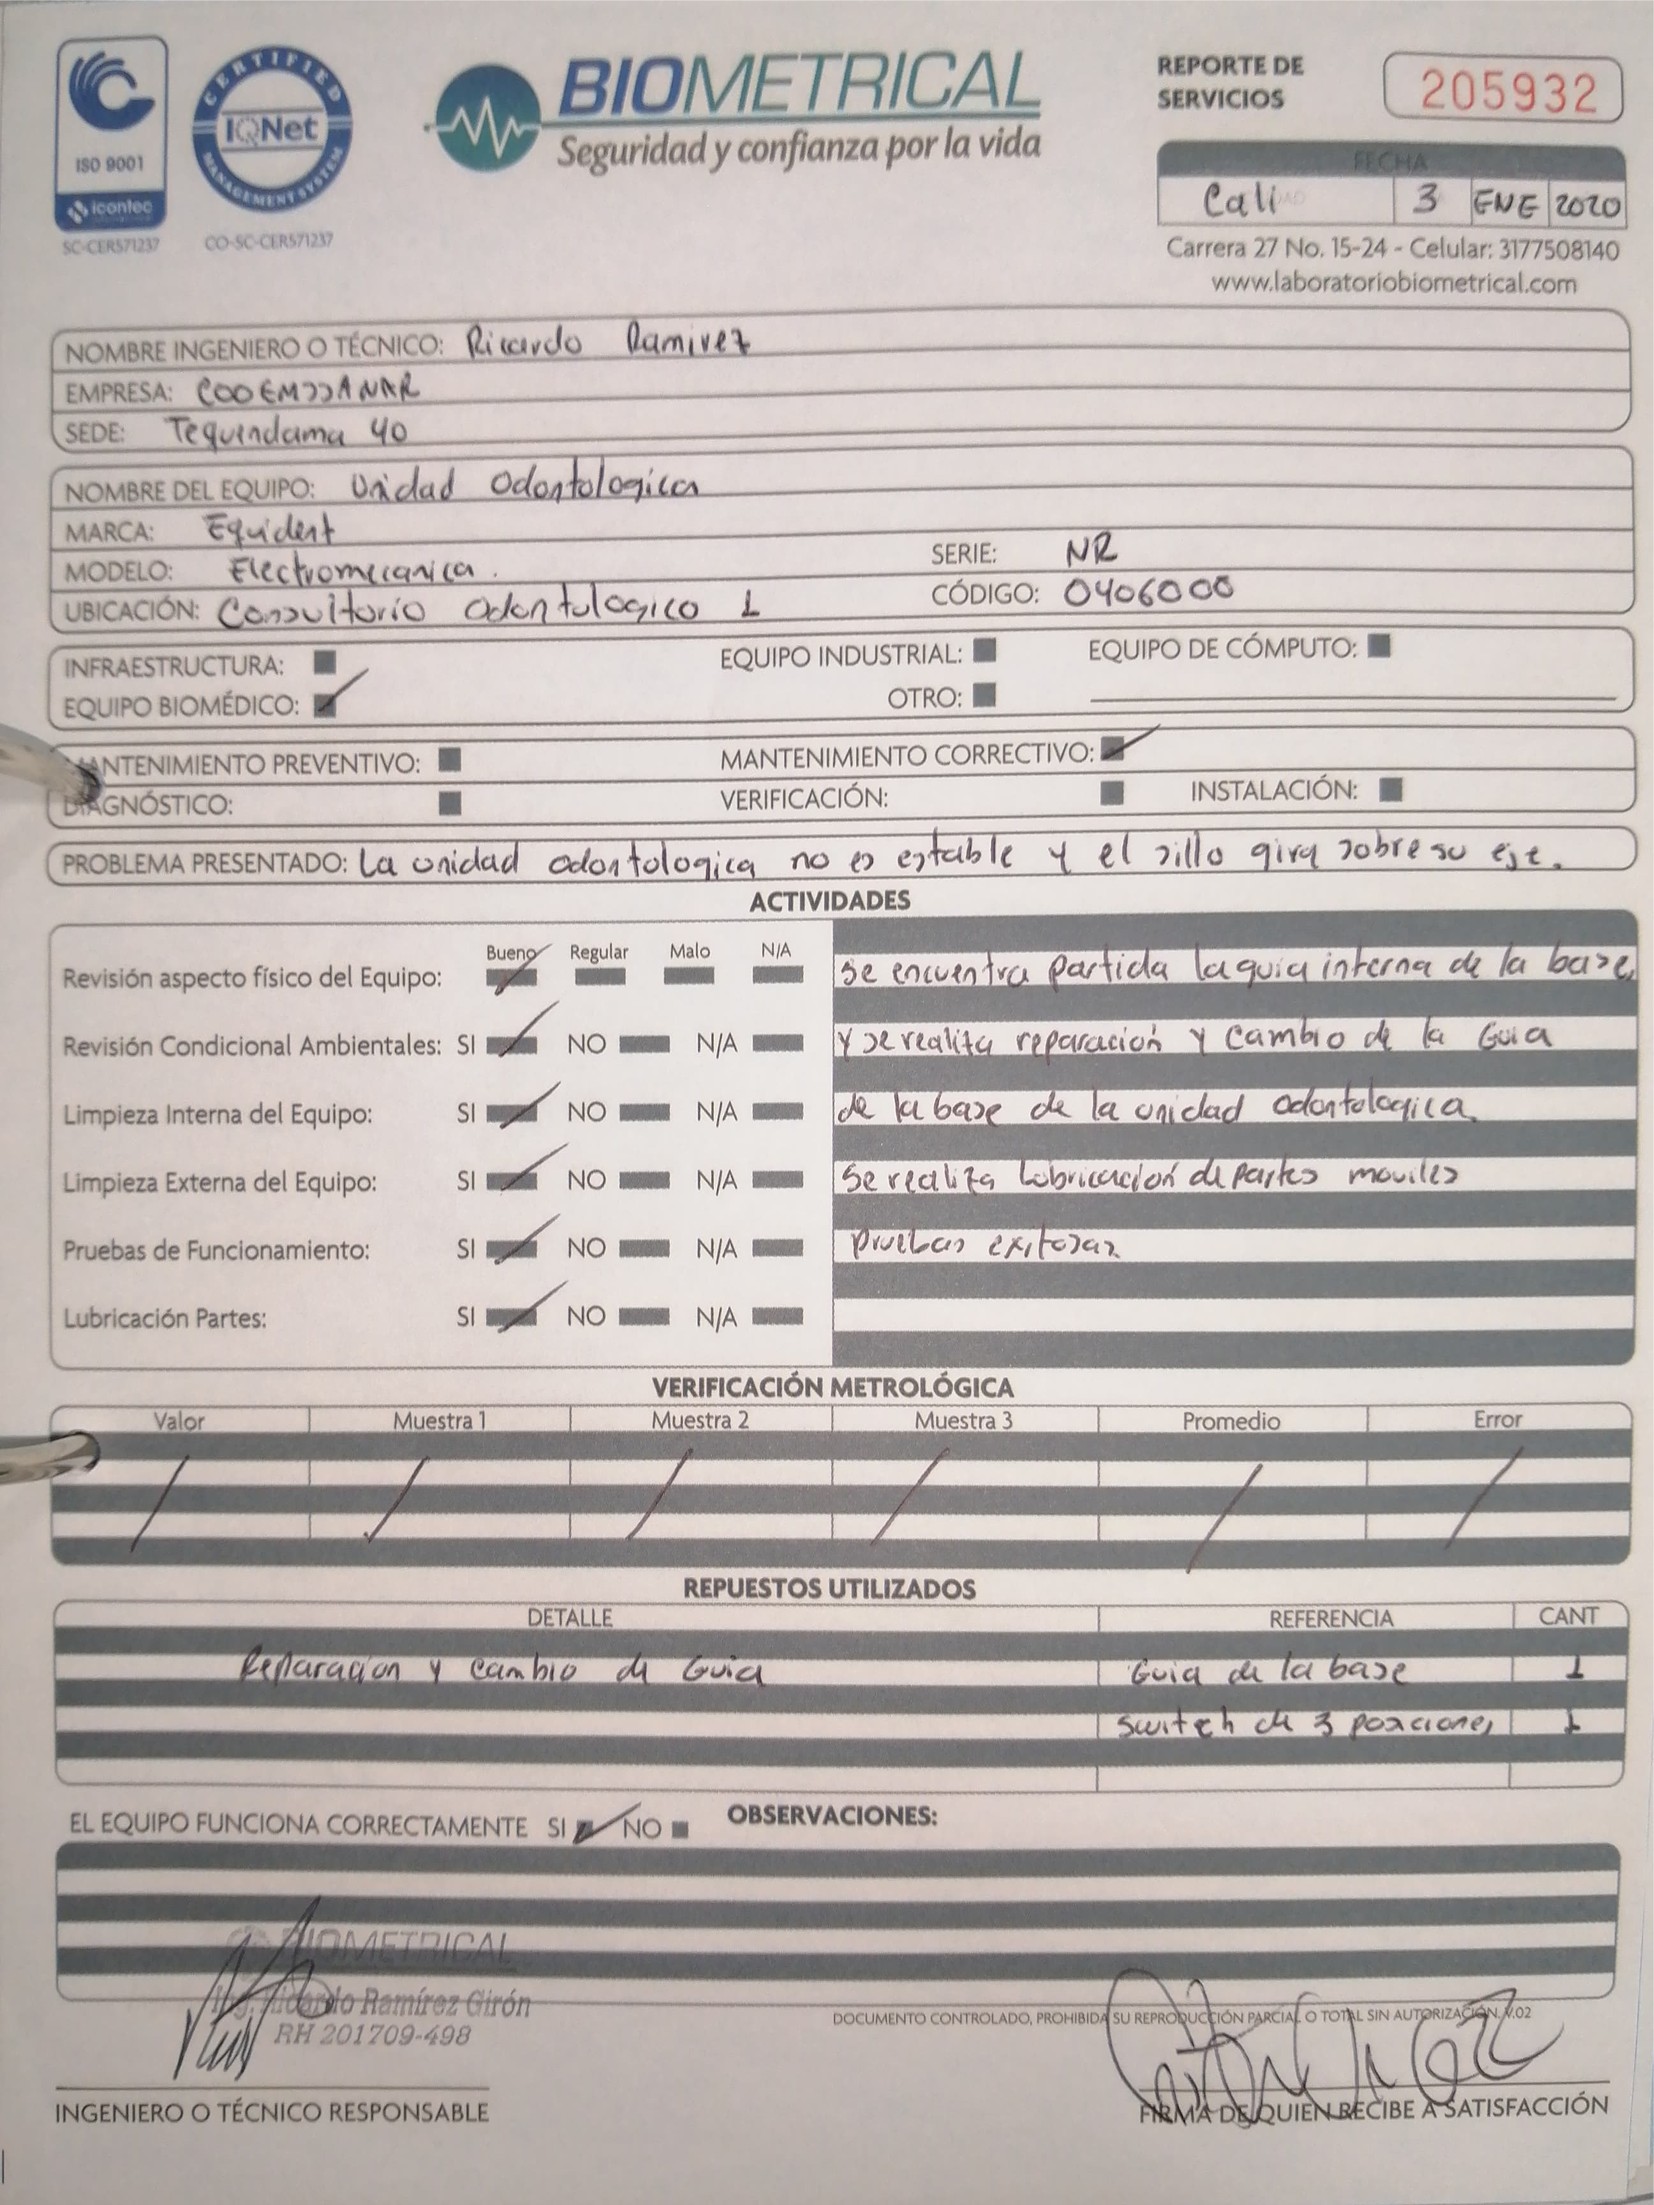 ISO 9001
icontec
SC-CER571237
CERTIFIED
IQNet
MANAGEMENT SYSTEM
CO-SC-CER571237
BIOMETRICAL
Seguridad y confianza por la vida
REPORTE DE
SERVICIOS
205932
FECHA
Cali 3 ENE 2020
Carrera 27 No. 15-24 - Celular: 3177508140
www.laboratoriobiometrical.com
NOMBRE INGENIERO O TÉCNICO: Ricardo Ramirez
EMPRESA: COOEMSSANAR
SEDE: Tequendama 40
NOMBRE DEL EQUIPO: Unidad Odontologica
MARCA: Equident
MODELO: Electromecanica. SERIE: NR
UBICACIÓN: Consultorio Odontologico 1 CÓDIGO: 0406000
INFRAESTRUCTURA: EQUIPO INDUSTRIAL: EQUIPO DE CÓMPUTO:
EQUIPO BIOMÉDICO: OTRO:
MANTENIMIENTO PREVENTIVO: MANTENIMIENTO CORRECTIVO:
DIAGNÓSTICO: VERIFICACIÓN: INSTALACIÓN:
PROBLEMA PRESENTADO: La unidad odontologica no es estable y el sillo gira sobre su eje.
ACTIVIDADES
Bueno Regular Malo N/A
Revisión aspecto físico del Equipo: Se encuentra partida la guia interna de la base,
Revisión Condicional Ambientales: SI NO N/A Y se realiza reparación y cambio de la Guia
Limpieza Interna del Equipo: SI NO N/A de la base de la unidad odontologica.
Limpieza Externa del Equipo: SI NO N/A Se realiza lubricación de partes moviles
Pruebas de Funcionamiento: SI NO N/A pruebas exitosas
Lubricación Partes: SI NO N/A
VERIFICACIÓN METROLÓGICA
Valor Muestra 1 Muestra 2 Muestra 3 Promedio Error
REPUESTOS UTILIZADOS
DETALLE REFERENCIA CANT
Reparacion y cambio de Guia Guia de la base 1
switch de 3 posiciones 1
EL EQUIPO FUNCIONA CORRECTAMENTE SI NO OBSERVACIONES:
BIOMETRICAL
Ing. Ricardo Ramírez Girón
RH 201709-498
DOCUMENTO CONTROLADO, PROHIBIDA SU REPRODUCCIÓN PARCIAL O TOTAL SIN AUTORIZACIÓN. V.02
INGENIERO O TÉCNICO RESPONSABLE
FIRMA DE QUIEN RECIBE A SATISFACCIÓN